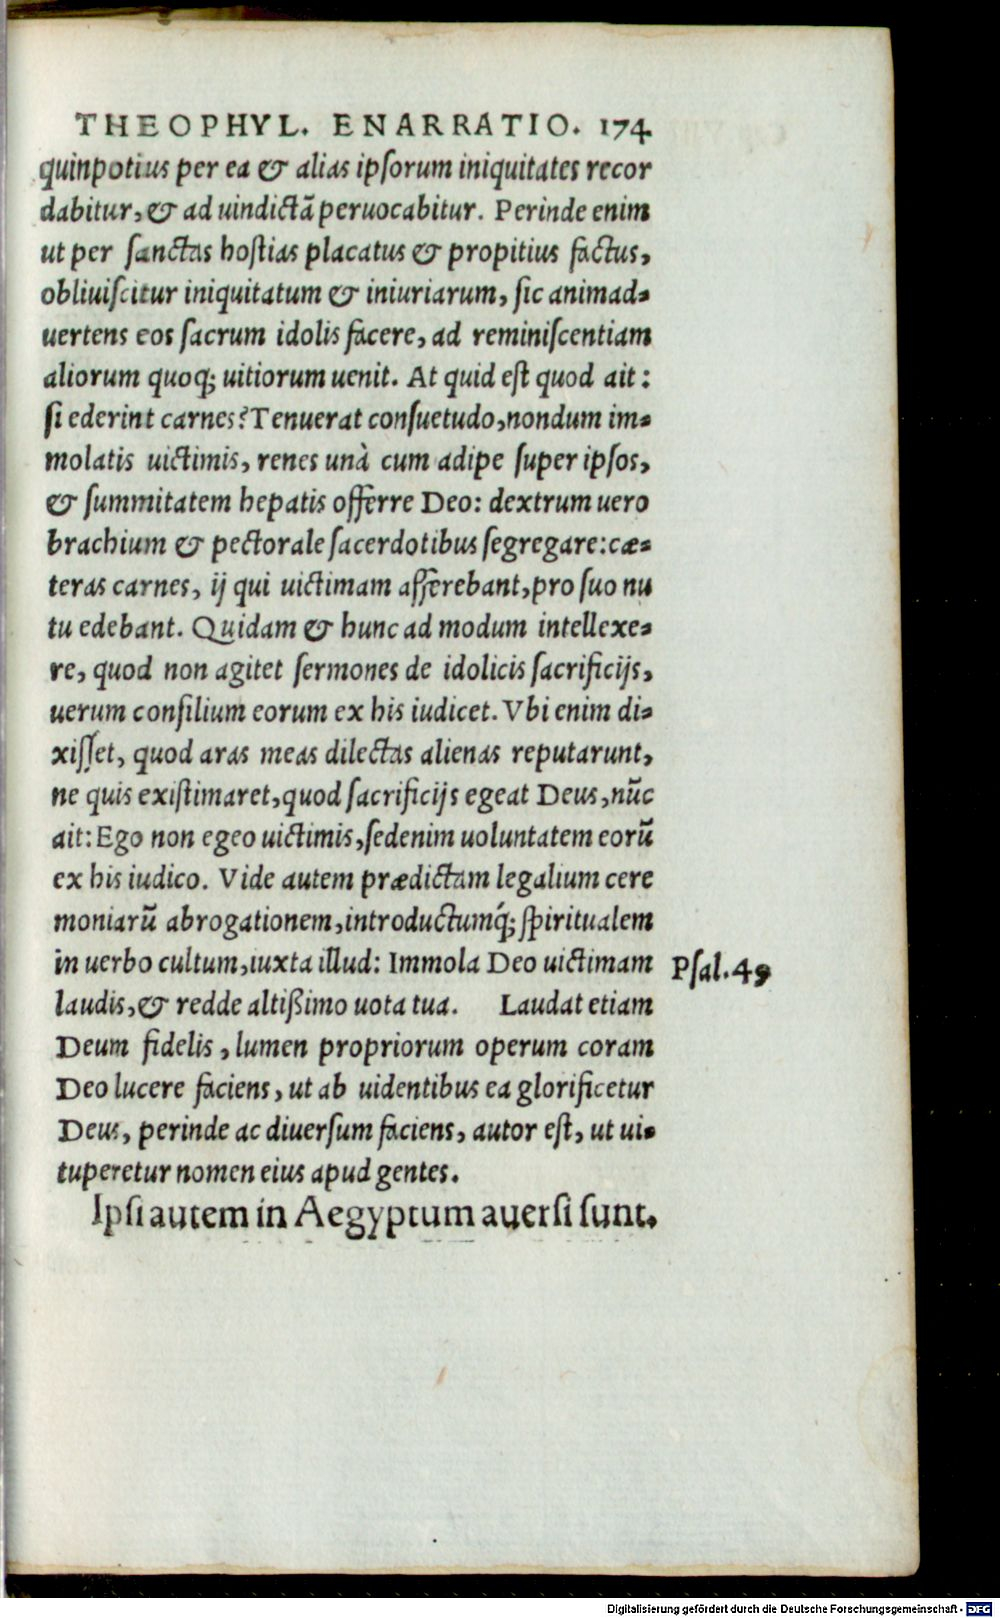 THEOPHYL. ENARRATIO. 174
quinpotius per ea & alias ipsorum iniquitates recor
dabitur, & ad uindictã peruocabitur. Perinde enim
ut per sanctas hostias placatus & propitius factus,
obliuiscitur iniquitatum & iniuriarum, sic animad-
uertens eos sacrum idolis facere, ad reminiscentiam
aliorum quoq; uitiorum uenit. At quid est quod ait:
si ederint carnes? Tenuerat consuetudo, nondum im-
molatis uictimis, renes unà cum adipe super ipsos,
& summitatem hepatis offerre Deo: dextrum uero
brachium & pectorale sacerdotibus segregare: cæ-
teras carnes, ij qui uictimam afferebant, pro suo nu
tu edebant. Quidam & hunc ad modum intellexe-
re, quod non agitet sermones de idolicis sacrificijs,
uerum consilium eorum ex his iudicet. Vbi enim di-
xisset, quod aras meas dilectas alienas reputarunt,
ne quis existimaret, quod sacrificijs egeat Deus, nũc
ait: Ego non egeo uictimis, sedenim uoluntatem eorũ
ex his iudico. Vide autem prædictam legalium cere
moniarũ abrogationem, introductumq́; spiritualem
in uerbo cultum, iuxta illud: Immola Deo uictimam
Psal. 49
laudis, & redde altißimo uota tua. Laudat etiam
Deum fidelis, lumen propriorum operum coram
Deo lucere faciens, ut ab uidentibus ea glorificetur
Deus, perinde ac diuersum faciens, autor est, ut ui-
tuperetur nomen eius apud gentes.
Ipsi autem in Aegyptum auersi sunt.
Digitalisierung gefördert durch die Deutsche Forschungsgemeinschaft - DFG